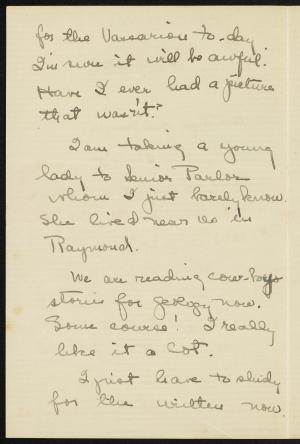 for the Vassarion to-day
I'm sure it will be awful.
Have I ever had a picture
that wasn't?
I am taking a young
lady to Senior Parlor
whom I just barely know.
She lived near us in
Raymond.
We are reading cow-boy
stories for geology now.
Some course! I really
like it a lot.
I just have to study
for the written now.